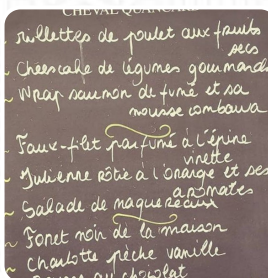 CHEVAL QUANCARD
~ rillettes de poulet aux fruits
secs
~ Cheescake de légumes gourmands
~ Wrap saumon de fumé et sa
mousse combawa
~ Faux-filet parfumé à l'épine
vinette
~ Julienne rôtie à l'orange et ses
aromates
~ Salade de maquereaux
~ Foret noir de la maison
~ Charlotte pêche vanille
au chocolat